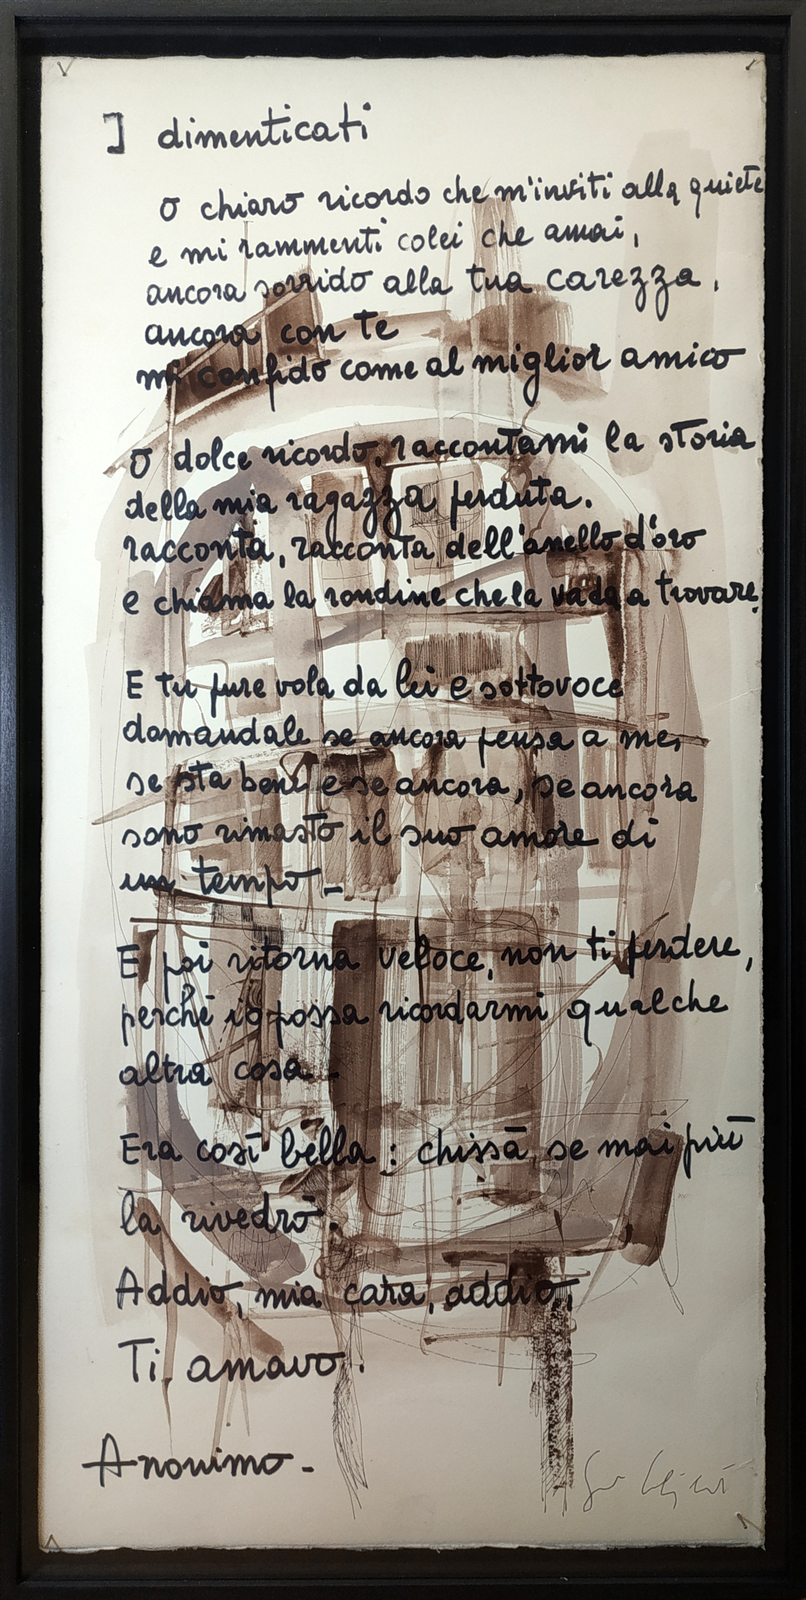 I dimenticati
O chiaro ricordo che m'inviti alla quiete
e mi rammenti colei che amai,
ancora sorrido alla tua carezza,
ancora con te
mi confido come al miglior amico
O dolce ricordo, raccontami la storia
della mia ragazza perduta.
racconta, racconta dell'anello d'oro
e chiama la rondine che la vada a trovare.
E tu pure vola da lei e sottovoce
domandale se ancora pensa a me,
se sta bene e se ancora, se ancora
sono rimasto il suo amore di
un tempo -
E poi ritorna veloce, non ti perdere,
perché io possa ricordarmi qualche
altra cosa -
Era così bella : chissà se mai più
la rivedrò.
Addio, mia cara, addio,
Ti amavo.
Anonimo -